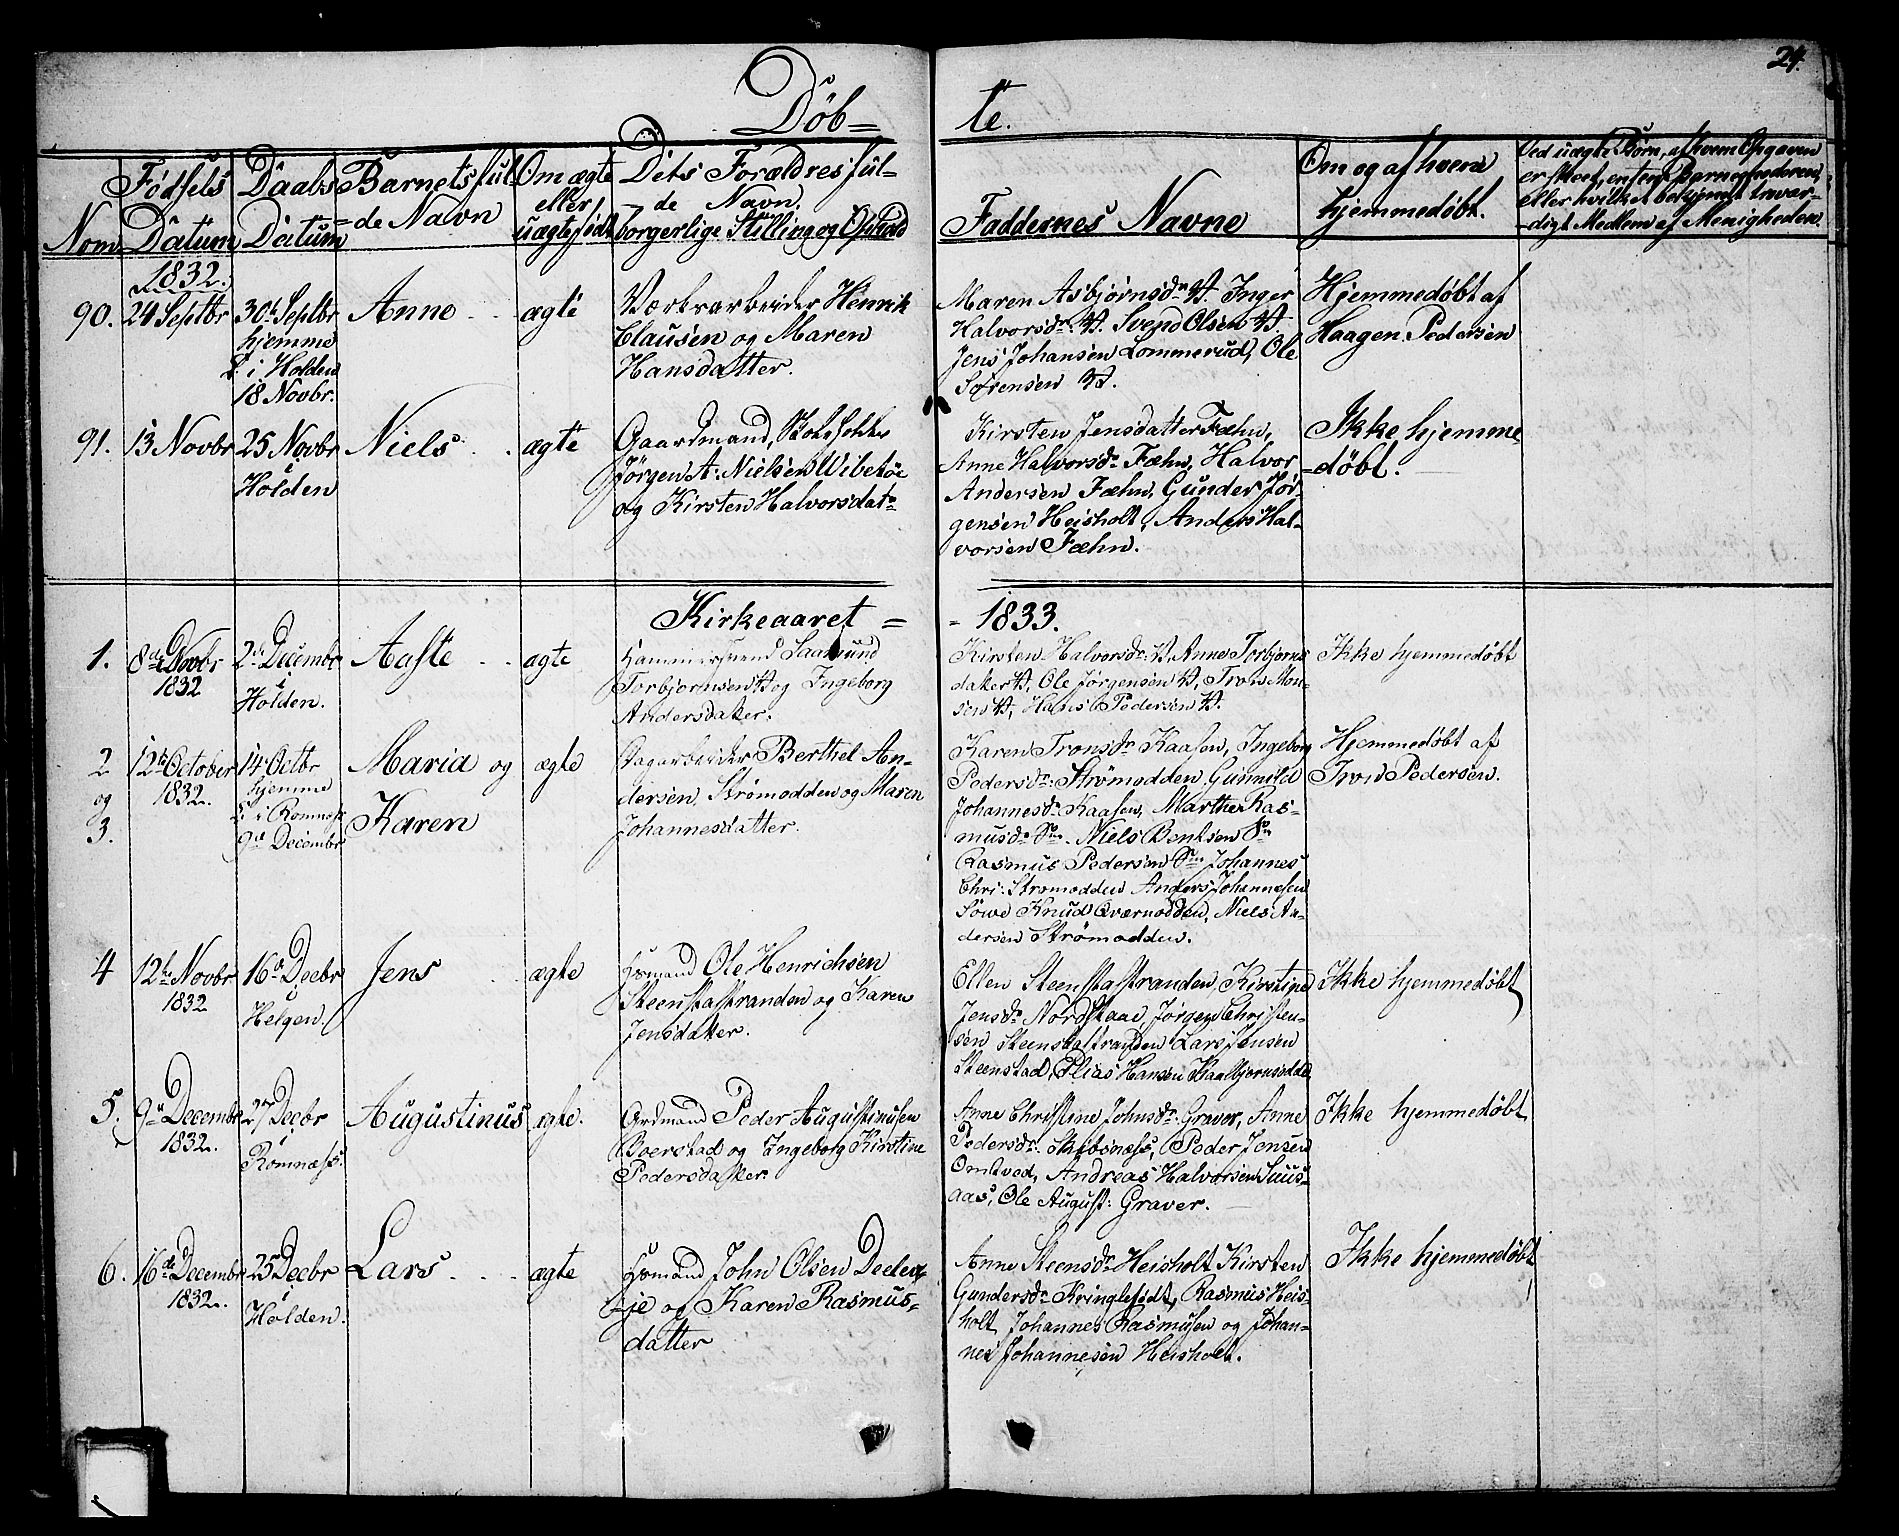 24.
Døb= te.
Nom
Fødsels Datum
Daabs Datum
Barnets ful= =de Navn
Om ægte eller uægte født
Dets Forældres ful= de Navn, borgerlige Stilling og Ophold
Faddernes Navne
Om og af hvem hjemmedøbt.
Ved uægte Børn, af hvem Opgaven er skeet, enten Barnemoderen, eller hvilket bekjendt trovær- -digt Medlem af Menigheden.
1832.
90. 24 Septbr
30t Septbr
hjemme
i Holden
18 Novbr.
Anne
ægte
Værksarbeider Henrik
Clausen og Maren
Hansdatter.
Maren Asbjørnsdr V. Inger
Halvorsdr. V. Svend Olsen V.
Jens Johansen Lommerud, Ole
Sørensen V.
Hjemmedøbt af
Haagen Pedersen
91. 13 Novbr
25 Novbr
i
Holden
Niels
ægte
Gaardmand,
Jørgen A: Nielsen Vibetøe
og Kirsten Halvorsdatr
Kirsten Jensdatter Fæhn,
Anne Halvorsdr Fæhn, Halvor
Andersen Fæhn, Gunder Jør-
gensen Heisholt, Anders Hal-
vorsen Fæhn.
Ikke hjemme
=døbt.
Kirkeaaret = - 1833.
1. 8de Novbr
1832
2de Decembr
i
Holden.
Aaste
ægte
Hammersmed Saamund
Torbjørnsen V og Ingeborg
Andersdatter.
Kirsten Halvorsdr. V. Anne Torbjørns
datter V, Ole Jørgensen V, Trons Mon-
sen V, Hans Pedersen V.
Ikke hjemmedøbt
2
og
3.
12te October
1832.
14 Octbr
hjemme
i Romnæs
9de Decembr
Maria og
Karen
ægte
Dagarbeider Berthel An-
dersen, Strømodden og Maren
Johannesdatter.
Karen Tronsdr Kaasen, Ingeborg
Pedersdr. Strømodden, Gunnild
Johannesdr. Kaasen, Marthe Ras-
musdr Sm. Niels Bentsen Sm
Rasmus Pedersen Sm Johannes
Chri: Strømodden Anders Johannesen
Sowe Knud Qværnodden, Niels An-
dersen Strømodden.
Hjemmedøbt af
Trond Pedersen.
4
12te Novbr
1832
16de Decbr
i
Helgen
Jens
ægte
Hsmand Ole Henrichsen
Steenstastranden og Karen
Jensdatter.
Ellen Steenstastranden, Kirstine
Jensdr Nordstaae, Jørgen Christen-
sen Steenstastranden Lars Jensen
Steenstad, Elias Hansen
Ikke hjemmedøbt
5.
9de Decembr
1832.
27 Decbr
i
Romnæss.
Augustinus
ægte.
Grdmand Peder Augustinusen
Boerstad og Ingeborg Kirstine
Pedersdatter
Anne Christine Johnsdr. Graver, Anne
Pedersdr. Skibsnæss, Peder Jensen
Omtved, Andreas Halvorsen Suus-
aas, Ole August: Graver.
Ikke hjemmedøbt
6.
16de Decembr
1832.
25 Decbr
i
Holden.
Lars
ægte
Hsmand John Olsen Deelen-
-je og Karen Rasmus-
datter
Anne Steensdr Heisholt Kirsten
Gundersdr Kringlefødt, Rasmus Heis-
holt, Johannes Rasmusen og Johan-
nes Johannesen Heisholt.
Ikke hjemmedøbt